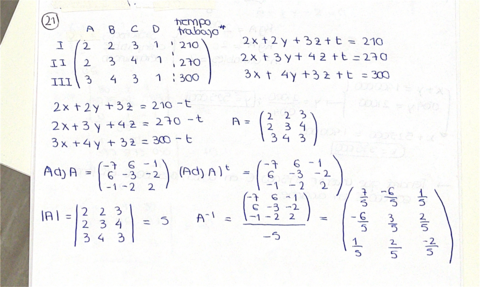 21
A B C D tiempo trabajo*
I 2 2 3 1 : 210
II 2 3 4 1 : 270
III 3 4 3 1 : 300
2x + 2y + 3z + t = 210
2x + 3y + 4z + t = 270
3x + 4y + 3z + t = 300
2x + 2y + 3z = 210 - t
2x + 3y + 4z = 270 - t
3x + 4y + 3z = 300 - t
A = ( 2 2 3
2 3 4
3 4 3 )
Adj A = ( -7 6 -1
6 -3 -2
-1 -2 2 )
(Adj A)^t = ( -7 6 -1
6 -3 -2
-1 -2 2 )
|A| = | 2 2 3
2 3 4
3 4 3 | = 5
A^-1 = ( -7 6 -1
6 -3 -2
-1 -2 2 )
-5
= ( 7/5 -6/5 1/5
-6/5 3/5 2/5
1/5 2/5 -2/5 )